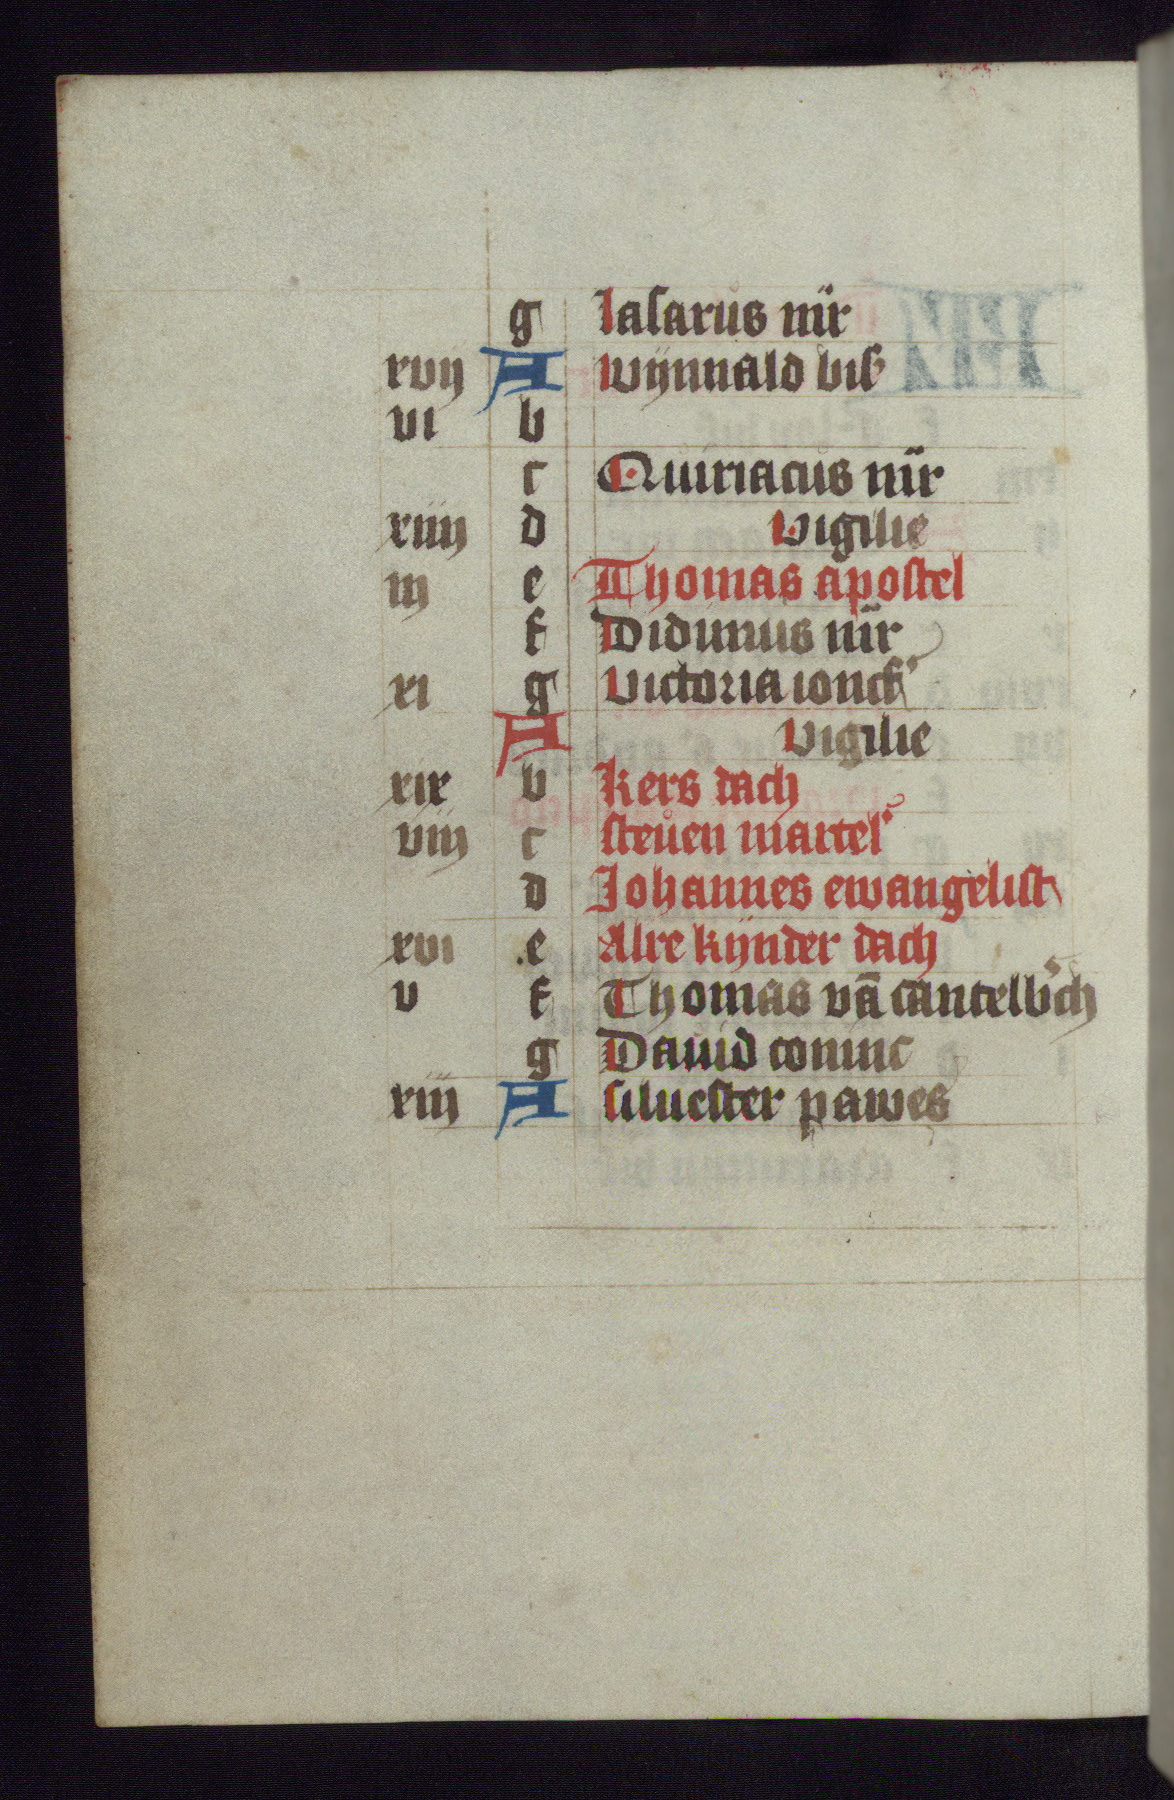 g lasarus mr̄
xvij A wijnnald bis
vi b
c Quiriacus mr̄
xiiij d vigilie
iij e Thomas apostel
f Didimus mr̄
xi g victoria ioncfˈ
A vigilie
xix b kers dach
viij c steuen martelˈ
d Johannes ewangelist
xvi e Alre kijnder dach
v f Thomas vā cantelbˈch
g Dauid coninc
xiij A siluester pawes